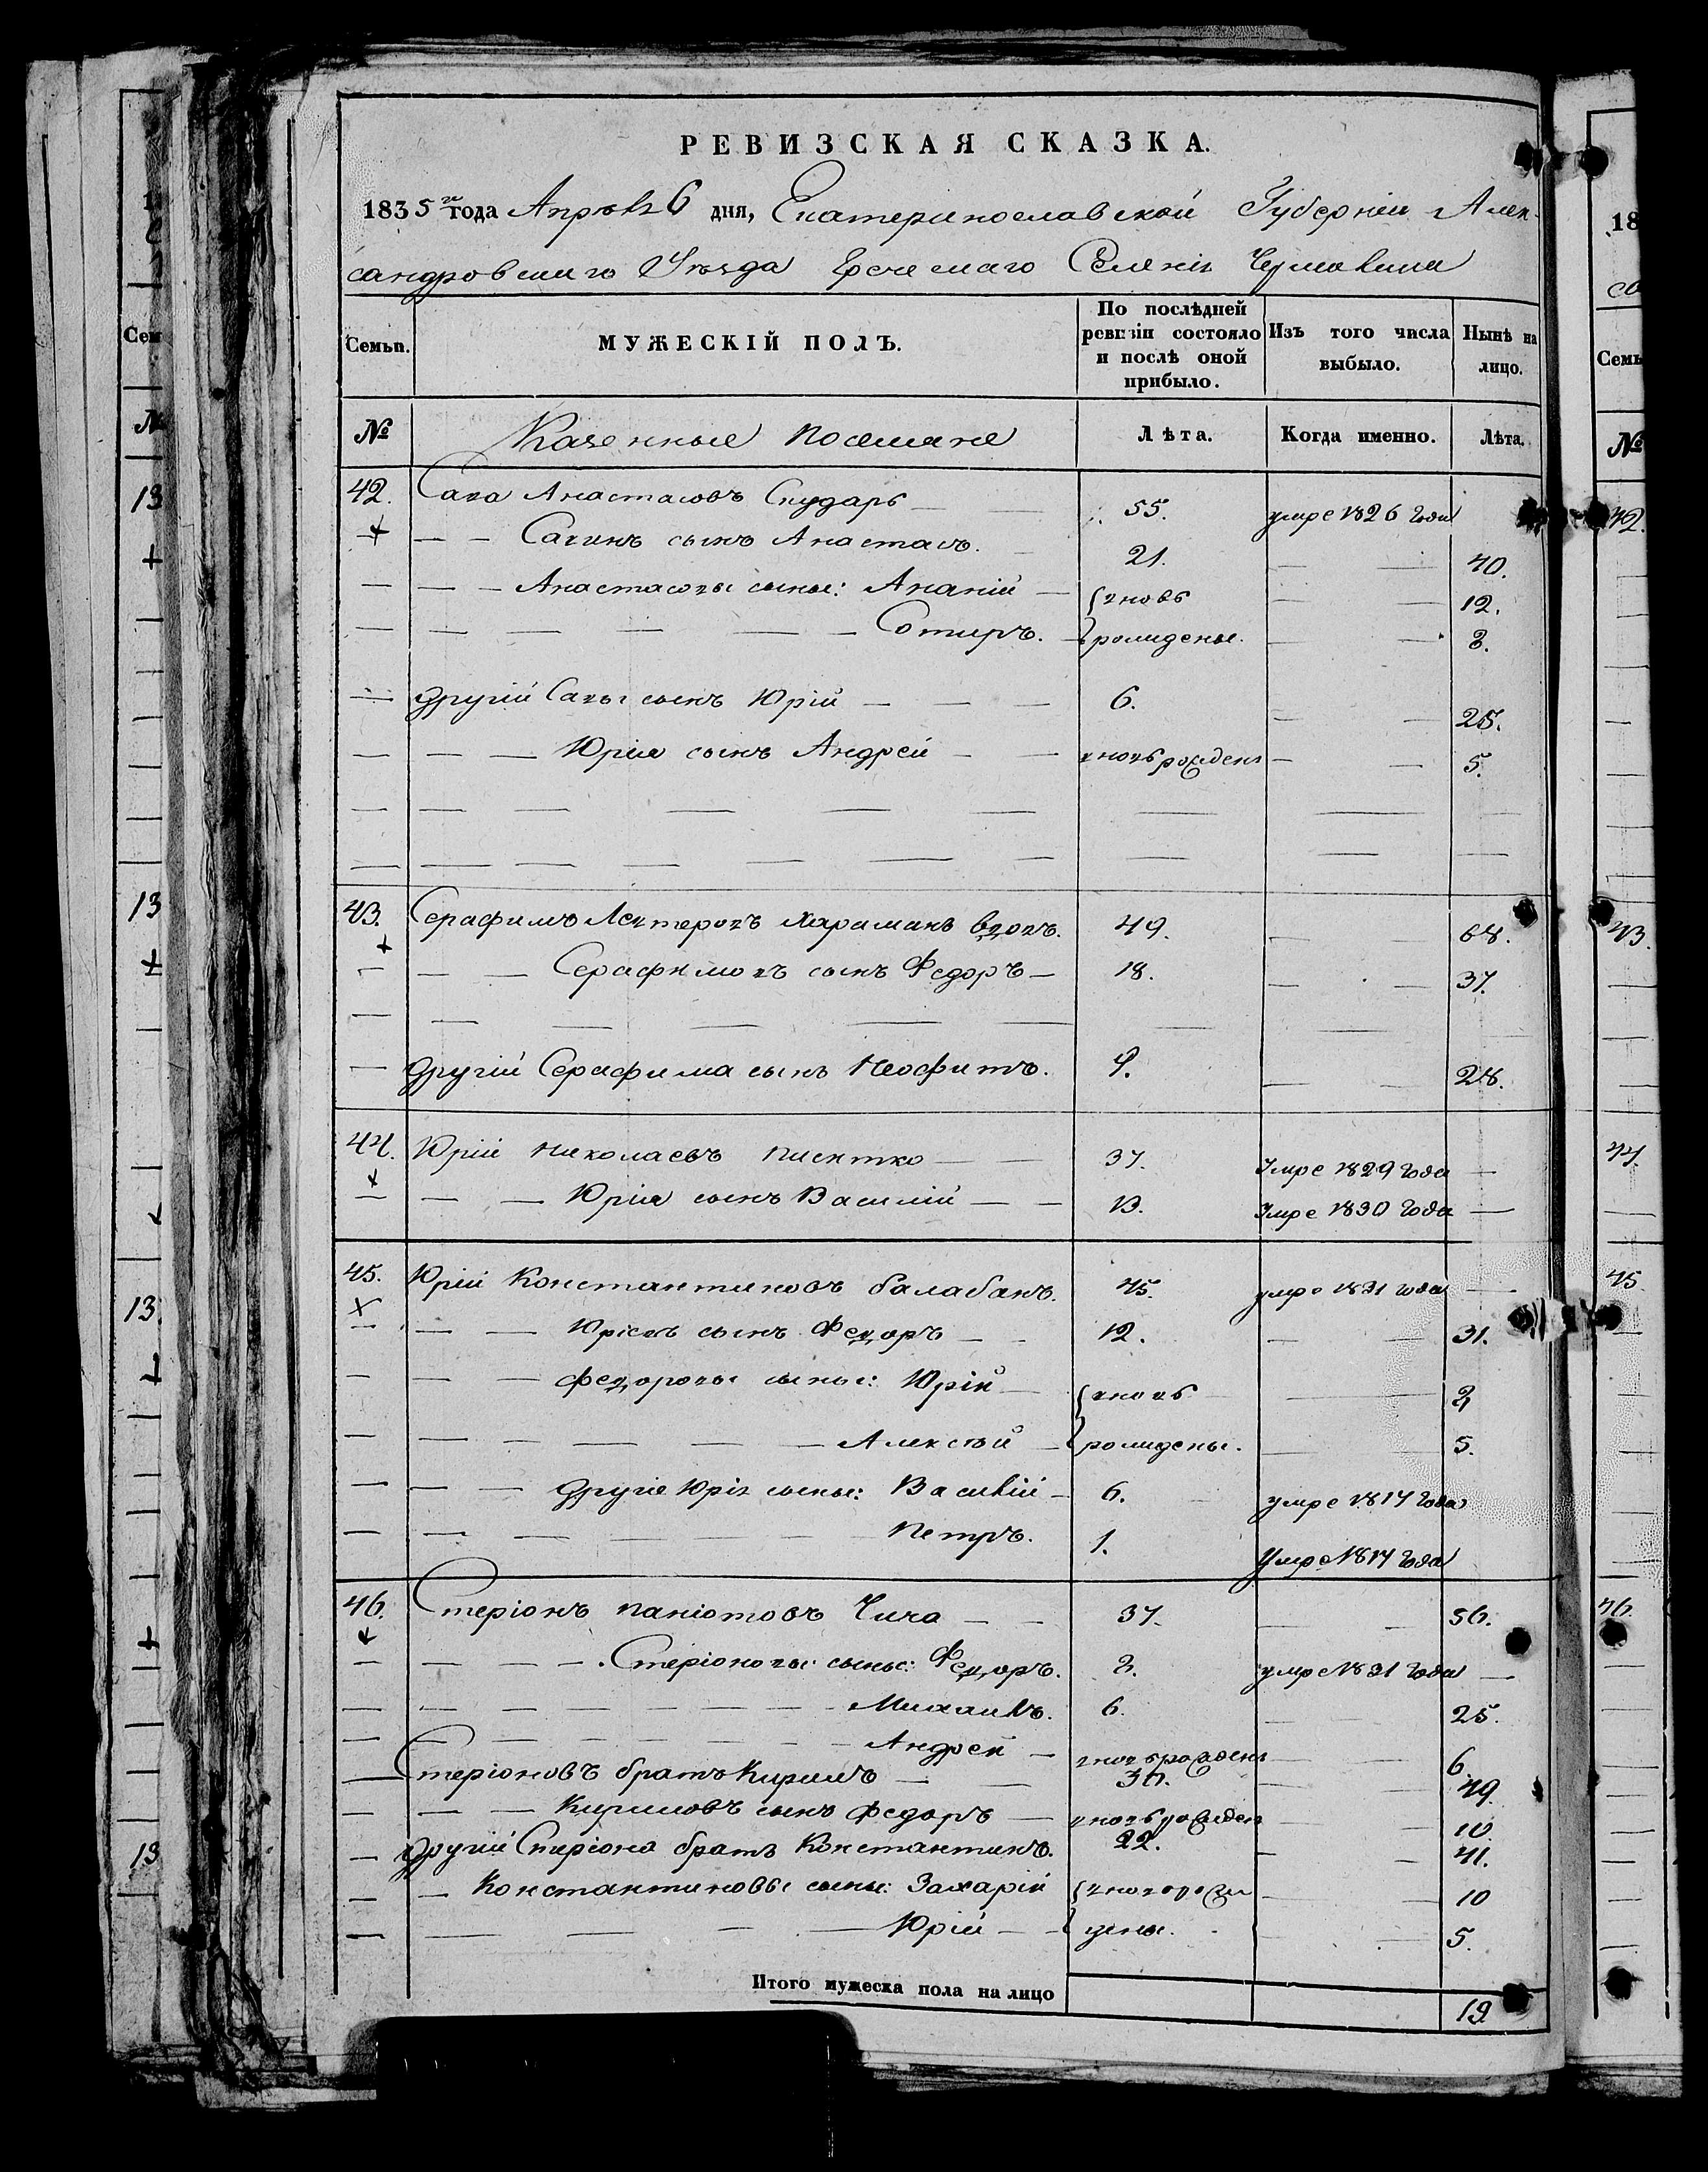 РЕВИЗСКАЯ СКАЗКА.
1835го года Апрѣля 6 дня, Екатеринославской Губерніи Алек-
сандровскаго Уѣзда Греческаго Селенія Чермалика
Семьи. МУЖЕСКІЙ ПОЛЪ. По послѣдней ревизіи состояло и послѣ оной прибыло. Изъ того числа выбыло. Нынѣ на лицо.
№ Казенные поселяне Лѣта. Когда именно. Лѣта.
42. Сава Анастасовъ Скударь 55. умре 1826 года
Савинъ сынъ Анастасъ. 21. 40.
Анастасовы сыны: Ананій вновь 12.
Сотиръ. рожденые. 3.
другій Савы сынъ Юрій 6. 25.
Юрія сынъ Андрей вновь рожденъ 5.
43. Серафимъ Лефтеровъ Хараманъ вдовъ. 49. 68.
Серафимовъ сынъ Федоръ 18. 37.
другій Серафима сынъ Неофитъ. 9. 28.
44. Юрій Николаевъ 37. Умре 1829 года
Юрія сынъ Василій 13. Умре 1830 года
45. Юрій Константиновъ балабанъ. 45. умре 1831 года
Юріевъ сынъ Федоръ 12. 31.
Федоровы сыны: Юрій вновь 7
Алексѣй рожденые. 5.
другіе Юрія сыны: Василій 6. умре 1817 года
Петръ. 1. Умре 1817 года
46. Стеріонъ Паніотовъ Чича 37. 56.
Стеріоновы сыны: Федоръ. 8. умре 1831 года
Михаилъ. 6. 25.
Андрей вновь рожденъ 6
Стеріоновъ братъ Кирилъ 30. 49.
Кириловъ сынъ Федоръ вновь рожденъ 10.
другій Стеріона братъ Константинъ. 22. 41.
Константиновы сыны: Захарій вновь рож 10
Юрій дены. 5.
Итого мужеска пола на лицо 19